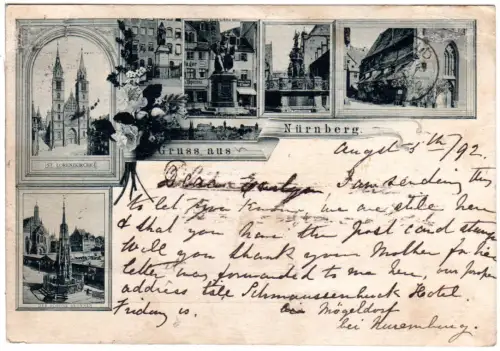 ST. LORENZKIRCHE
Gruss aus
Nürnberg.
August 5th/92.
Dear Evelyn I am sending this
to let you know we are still here
& that you have the post card stamps
Will you thank your Mother for her
letter was forwarded to me here, our proper
address till
Schmaussenbuck Hotel.
Friday is.
bei Mögeldorf
bei Nuremburg.